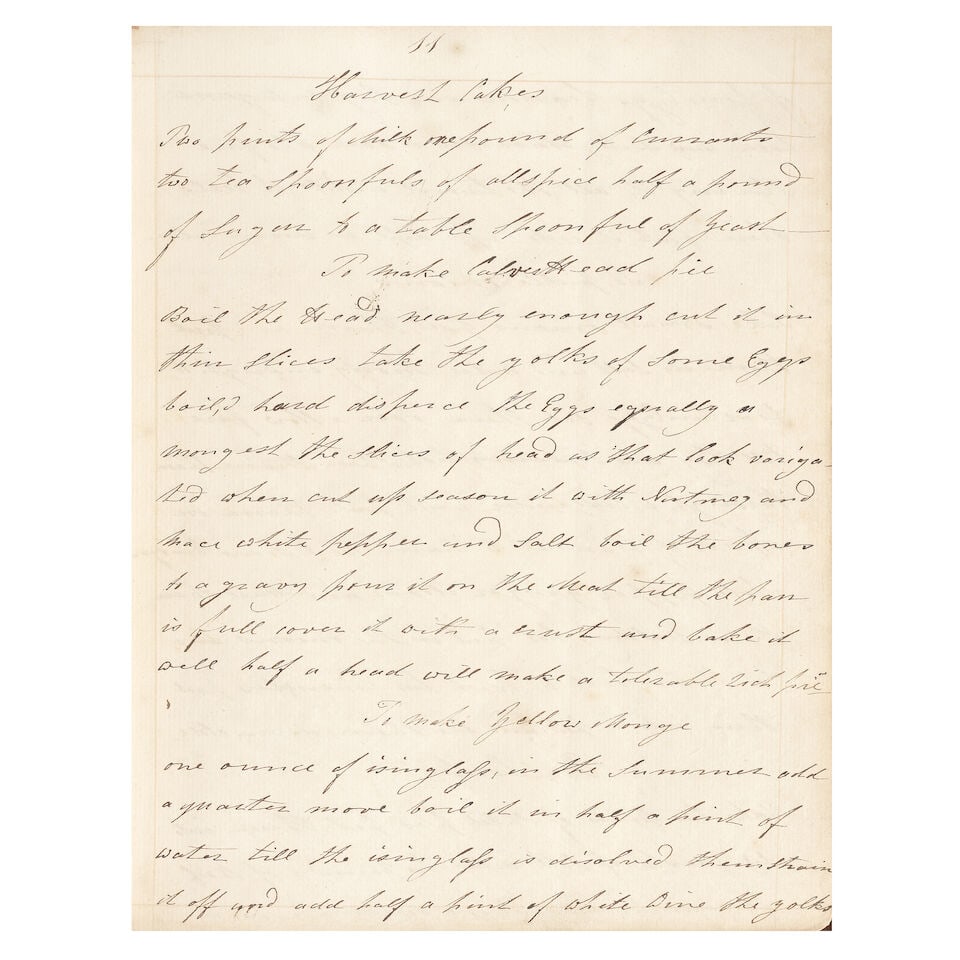 11
Harvest Cakes
Two pints of Milk one pound of Currants
two tea spoonfuls of allspice half a pound
of Sugar to a table spoonful of Yeast
To make Calves Head pie
Boil the Head nearly enough cut it in
thin slices take the yolks of some Eggs
boil,d hard disperce the Eggs equally a
mongest the slices of head as that look variga-
ted when cut up season it with Nutmeg and
Mace white pepper and Salt boil the bones
to a gravy pour it on the Meat till the pan
is full cover it with a crust and bake it
well half a head will make a tolerable rich pie
To make Yellow Monge
one ounce of isinglass, in the Summer add
a quarter more boil it in half a pint of
water till the isinglass is disolved then strain
it off and add half a pint of white Wine the yolks